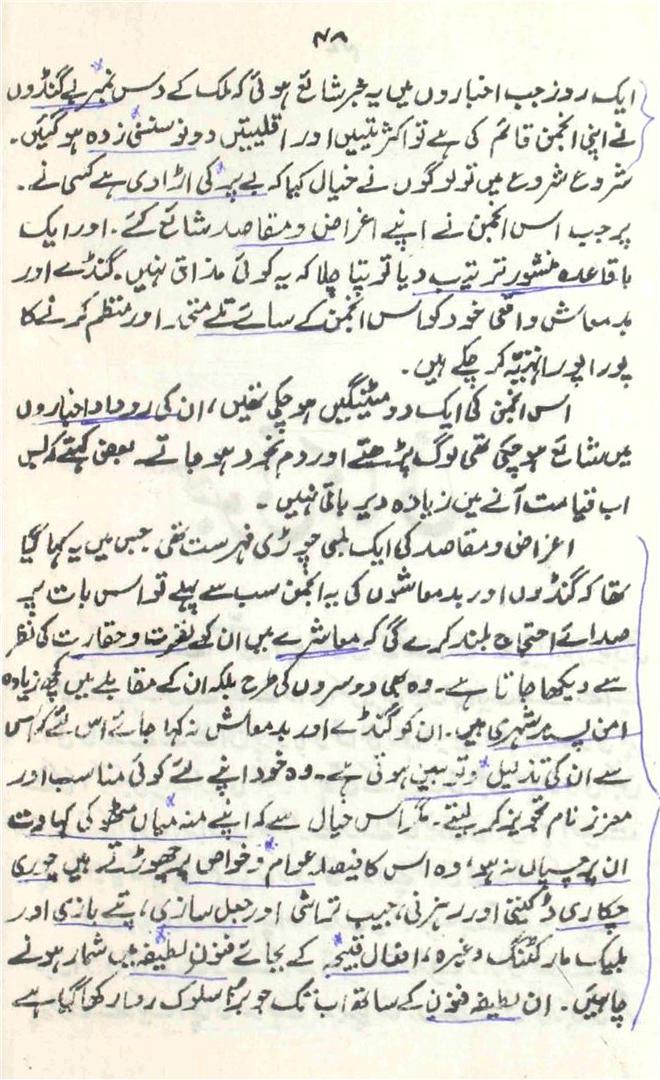 ۴۸
ایک روز جب اخباروں میں یہ خبر شائع ہوئی کہ ملک کے دس نمبریے گنڈوں
نے اپنی انجمن قائم کی ہے تو اکثریتیں اور اقلیتیں دونو سنسنی زدہ ہوگئیں۔
شروع شروع میں تو لوگوں نے خیال کیا کہ بے پر کی اڑا دی ہے کسی نے۔
پر جب اس انجمن نے اپنے اغراض و مقاصد شائع کئے۔ اور ایک
باقاعدہ منشور ترتیب دیا تو پتا چلا کہ یہ کوئی مذاق نہیں۔ گنڈے اور
بدمعاش واقعی خود کو اس انجمن کے سائے تلے متحد اور منظم کرنے کا
پورا پورا تہیّہ کر چکے ہیں۔
اس انجمن کی ایک دو میٹنگیں ہو چکی تھیں، ان کی روداد اخباروں
میں شائع ہو چکی تھی لوگ پڑھتے اور دم بخود ہو جاتے۔ بعض کہتے کہ بس
اب قیامت آنے میں زیادہ دیر باقی نہیں۔
اغراض و مقاصد کی ایک لمبی چوڑی فہرست تھی جس میں یہ کہا گیا
تھا کہ گنڈوں اور بدمعاشوں کی یہ انجمن سب سے پہلے تو اس بات پر
صدائے احتجاج بلند کرے گی کہ معاشرے میں ان کو نفرت و حقارت کی نظر
سے دیکھا جاتا ہے۔ وہ بھی دوسروں کی طرح بلکہ ان کے مقابلے میں کچھ زیادہ
امن پسند شہری ہیں۔ ان کو گنڈے اور بدمعاش نہ کہا جائے اس لئے کہ اس
سے ان کی تذلیل و توہین ہوتی ہے۔ وہ خود اپنے لئے کوئی مناسب اور
معزز نام تجویز کر لیتے۔ مگر اس خیال سے کہ اپنے منہ میاں مٹھو کی کہاوت
ان پر چسپاں نہ ہو، وہ اس کا فیصلہ عوام و خواص پر چھوڑتے ہیں چوری
چکاری ڈکیتی اور رہزنی، جیب تراشی اور جعل سازی، پتے بازی اور
بلیک مارکٹنگ وغیرہ، افعال قبیحہ کے بجائے فنون لطیفہ میں شمار ہونے
چاہئیں۔ ان لطیف فنون کے ساتھ اب تک جو برا سلوک روا رکھا گیا ہے